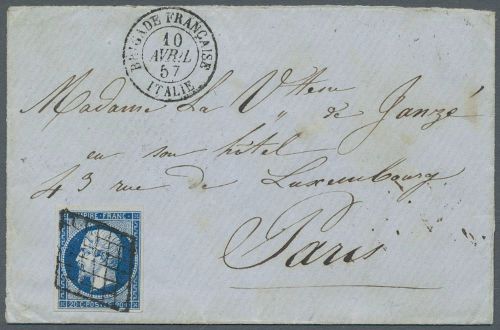 BRIGADE FRANÇAISE
10
AVRIL
57
ITALIE
Madame La Vtesse de Janzé
en son hôtel
43 rue de Luxembourg
Paris
EMPIRE FRANC
20 C POSTES 20